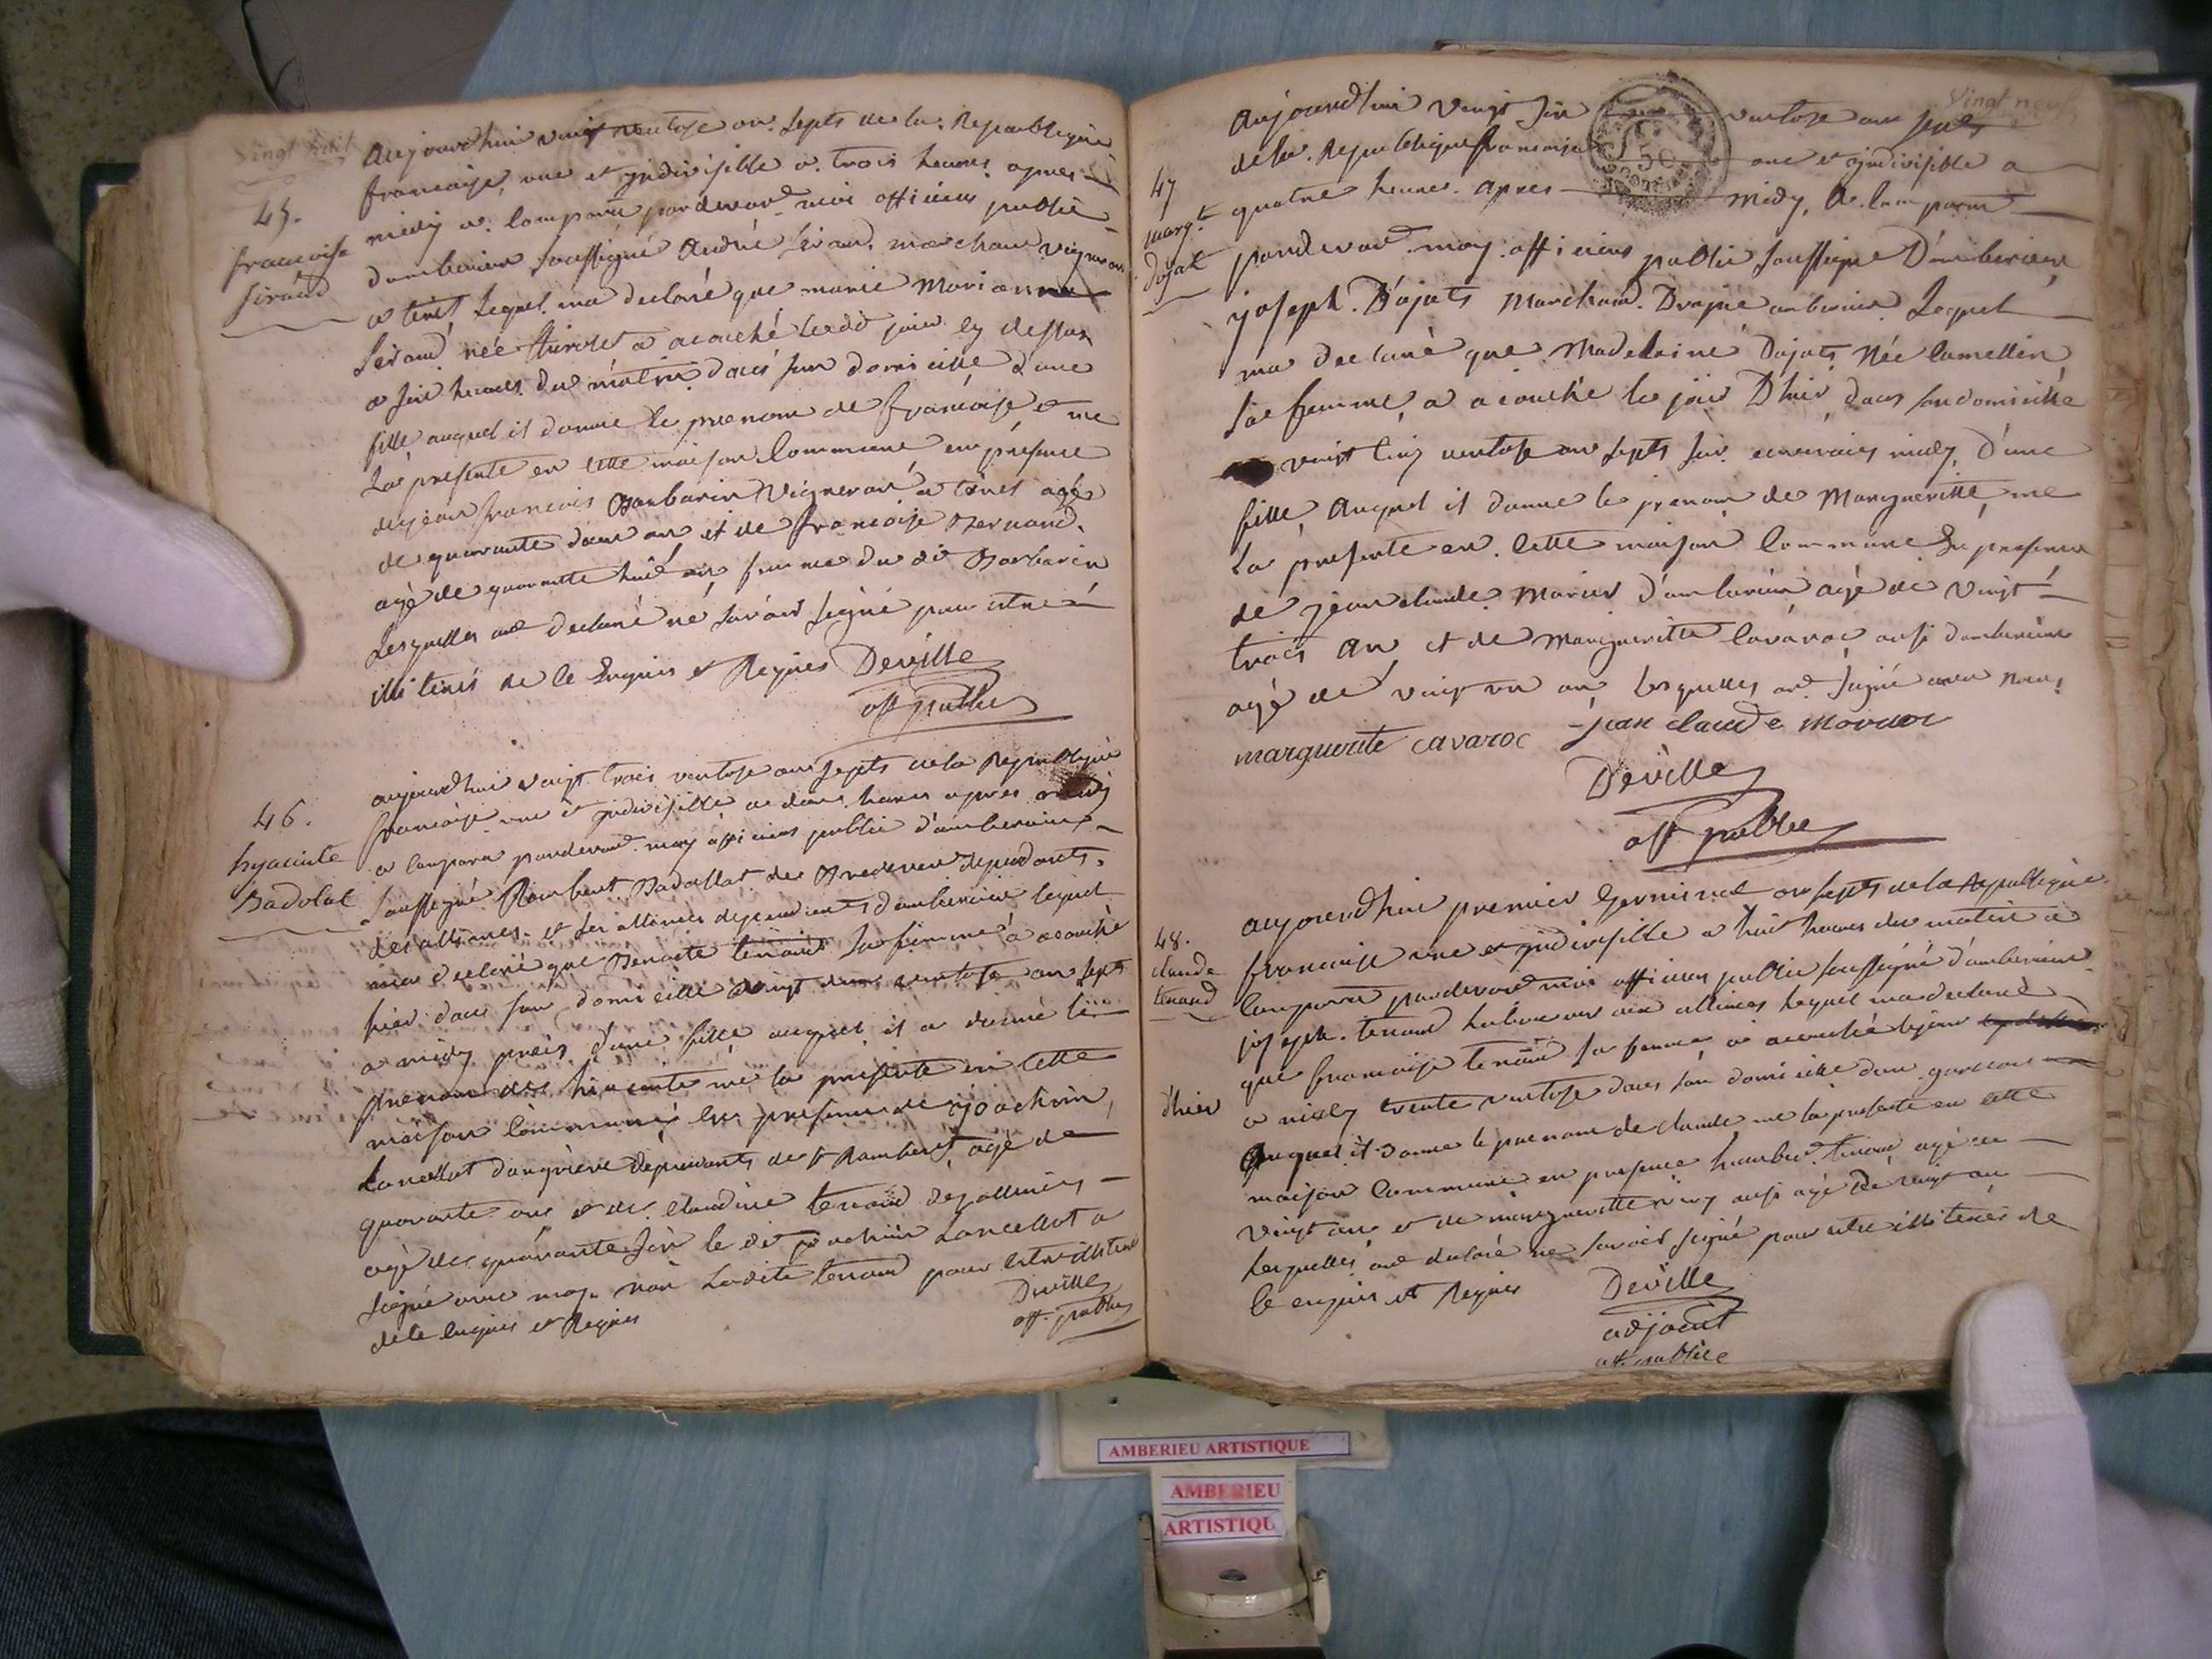 vingt huit
45.
francoise
siraud
aujourdhui vingt ventose an septs de la Republique
francaise, une et jndivisible a trois heures apres
midy a comparu pardevand moi officier public
damberieu soussigné André siraud, marchand vigneron
a tiret lequel ma declaré que marie marianne
siraud née a acouché ledit jour cy dessus
a six heures du matin dans son domicille d'une
fille auquel il donne le prenom de francoise et me
la presente en cette maison commune en présence
de jean francois Barbarin vigneron a tiret agé
de quarante deux an et de francoise Bernand,
agé de quarante huit an femme du dit Barbarin
Lesquelles ont declaré ne savoir signé pour etre
illiterés de le enquis et Requis Deville
off public
46.
hyacinte
Badolat
aujourdhui vingt trois ventose an septs de la Republique
francaise une et jndivisible a deux heures apres midy
a comparu pardevand moy officier public d'amberieux
soussigné Rambert Badollat de
des allimes et les allimes dependants d'amberieux lequel
ma declaré que Benoite tenand sa femme a acouché
hier dans son domicille vingt deux ventose an septs
a midy precis d'une fille auquel il a donné le
prenom de hiacinte me la presente en cette
maison commune en presence de joachim
Lancellot d'angrieve dependants de st Rambert, agé de
quarante ans et de claudine tenand des allimes
agé de quarante six le dit joachim Lancellot a
signé avec moy non ladite tenand pour estre illiteré
de le enquis et Requis
Deville
off. public
vingt neuf
47
marg.te
dojat
aujourdhui vingt six ventose an septs
de la Republique francaise une et jndivisible a
quatre heures apres midy, a comparu
pardevand moy officier public soussigné D'amberieux
joseph Dojats marchand Drapié amberieu Lequel
ma declaré que Madeleine Dojats Née
sa femme, a acouché le jour D'hier, dans son domicille
vingt cinq ventose an septs sur environ midy, d'une
fille, Auquel il donne le prenom de Margueritte, me
La presente en cette maison commune En presence
de jean claude Morier d'amberieu agé de vingt
trois an et de Margueritte Cavaroc ausi damberieux
agé de vingt un an lesquelles ont signé avec nous
marguerite cavaroc jean claude
Deville
off public
48.
claude
tenand
aujourdhui premier Germinal an septs de la Republique
francaise une et jndivisible a huit heures du matin a
comparu pardevand moi officier public soussigné d'amberieux
joseph tenand laboureur aux allimes lequel ma declaré
que francoise tenand sa femme, a acouché le jour cy dessus
d'hier
a midy trente ventose dans son domicille d'un garcons
Auquel il donne le prenom de claude me la presente en cette
maison commune en presence humbert tenand agé de
vingt ans et de margueritte ausi agé de vingt an
Lesquelles ont declaré ne savoir signé pour etre illiterés de
le enquis et Requis
Deville
adjoint
off. public
AMBERIEU ARTISTIQUE
AMBERIEU
ARTISTIQU